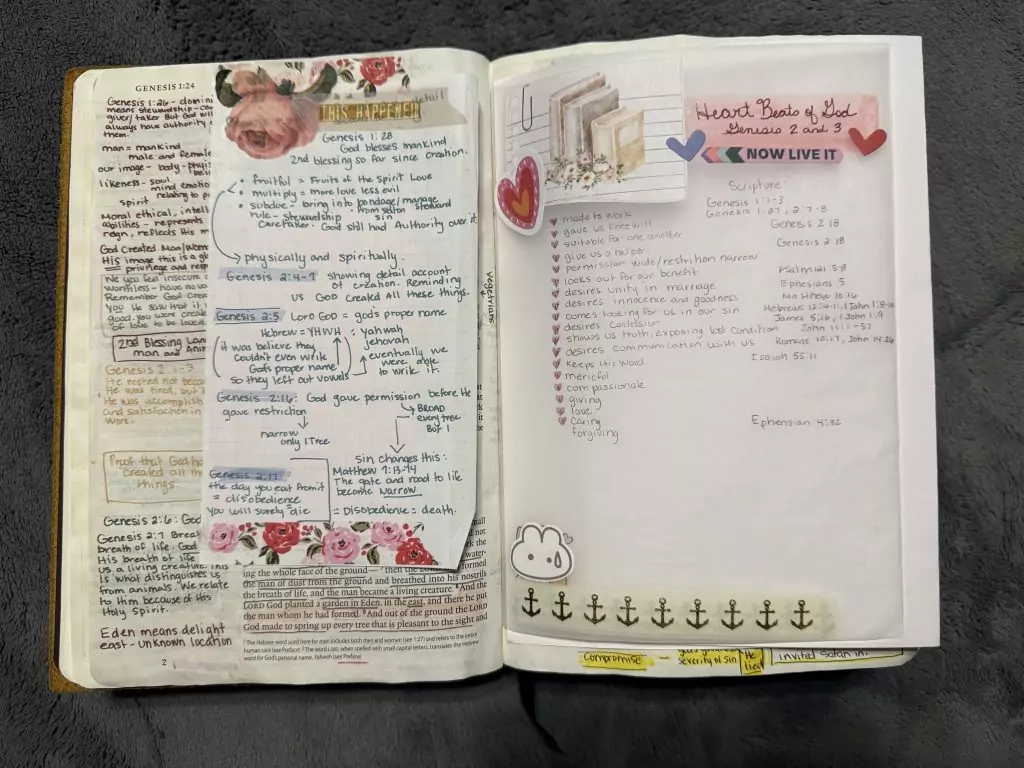 GENESIS 1:24
Genesis 1:26 - domini
means stewardship - car
giver/taker But God wil
always have authority
them.
man = mankind
male and female
our image - body - physi
likeness - soul
mind emotio
spirit relating to
Moral ethical, intell
abilities - represents
reign, reflects His m
God Created Man/Wom
HIS image this is a
privilege and resp
you feel insecure
worthless - have no va
Remember God Crea
you He saw that it
good. You were create
of love to be loved.
2nd Blessing Lan
man and Anim
Genesis 2:1-3
He rested not becau
He was tired, but
He was accomplish
and satisfaction in
work.
Proof that God ha
Created all th
things.
Genesis 2:6: God
Genesis 2:7 Breat
breath of life. God
His breath of life
us a living creature. This
is what distinguishes us
from animals. We relate
to Him because of His
Holy Spirit.
Eden means delight
east - unknown location
2
THIS HAPPENED
detail
Genesis 1:28
God blesses mankind
2nd blessing so far since creation.
• fruitful = Fruits of the Spirit Love
• multiply = more love less evil
• subdue - bring into bondage/manage
rule - stewardship sin
caretaker. God still had Authority over it
physically and spiritually.
Genesis 2:4-7 showing detail account
of creation. Reminding
us GOD created All these things.
Genesis 2:5 LORD GOD = gods proper name
Hebrew = YHWH : yahwah
jehovah
it was believe they
couldn't even write
God's proper name
so they left out vowels
eventually we
were able
to write it.
Genesis 2:16: God gave permission before He
gave restriction
BROAD
every tree
But 1
narrow
only 1 Tree
Sin changes this:
Matthew 7:13-14
The gate and road to life
become narrow
Genesis 2:17
the day you eat from it
= disobedience
you will surely die
= Disobedience = death.
vegetrians
ing the whole face of the ground— then the LORD God formed
the man of dust from the ground and breathed into his nostrils
the breath of life, and the man became a living creature. And the
LORD God planted a garden in Eden, in the east, and there he put
the man whom he had formed. And out of the ground the LORD
God made to spring up every tree that is pleasant to the sight and
The Hebrew word used here for man includes both men and women (see 1:27) and refers to the entire
human race (see Preface) The word LORD, when spelled with small capital letters, translates the Hebrew
word for God's personal name, Yahweh (see Preface)
Heart Beats of God
Genesis 2 and 3
NOW LIVE IT
Scripture:
Genesis 1:1-3
made to work Genesis 1:27, 2:7-8
gave us freewill Genesis 2:18
suitable for one another
give us a helper Genesis 2:18
permission wide/restrition narrow
looks out for our benefit Psalm 121:5-8
desires unity in marriage Ephesians 5
desires innocence and goodness Matthew 10:16
comes looking for us in our sin Hebrews 12:4-11, 1 John 1:9-10
desires Confession James 5:16, 1 John 1:9
shows us truth, exposing lost condition John 11:1-57
desires communication with us Romans 10:17, John 14:26
Keeps His Word Isaiah 55:11
merciful
compassionate
giving
love
Caring Ephensian 4:32
forgiving
compromise
severity of sin
He
lies
invited Satan in.